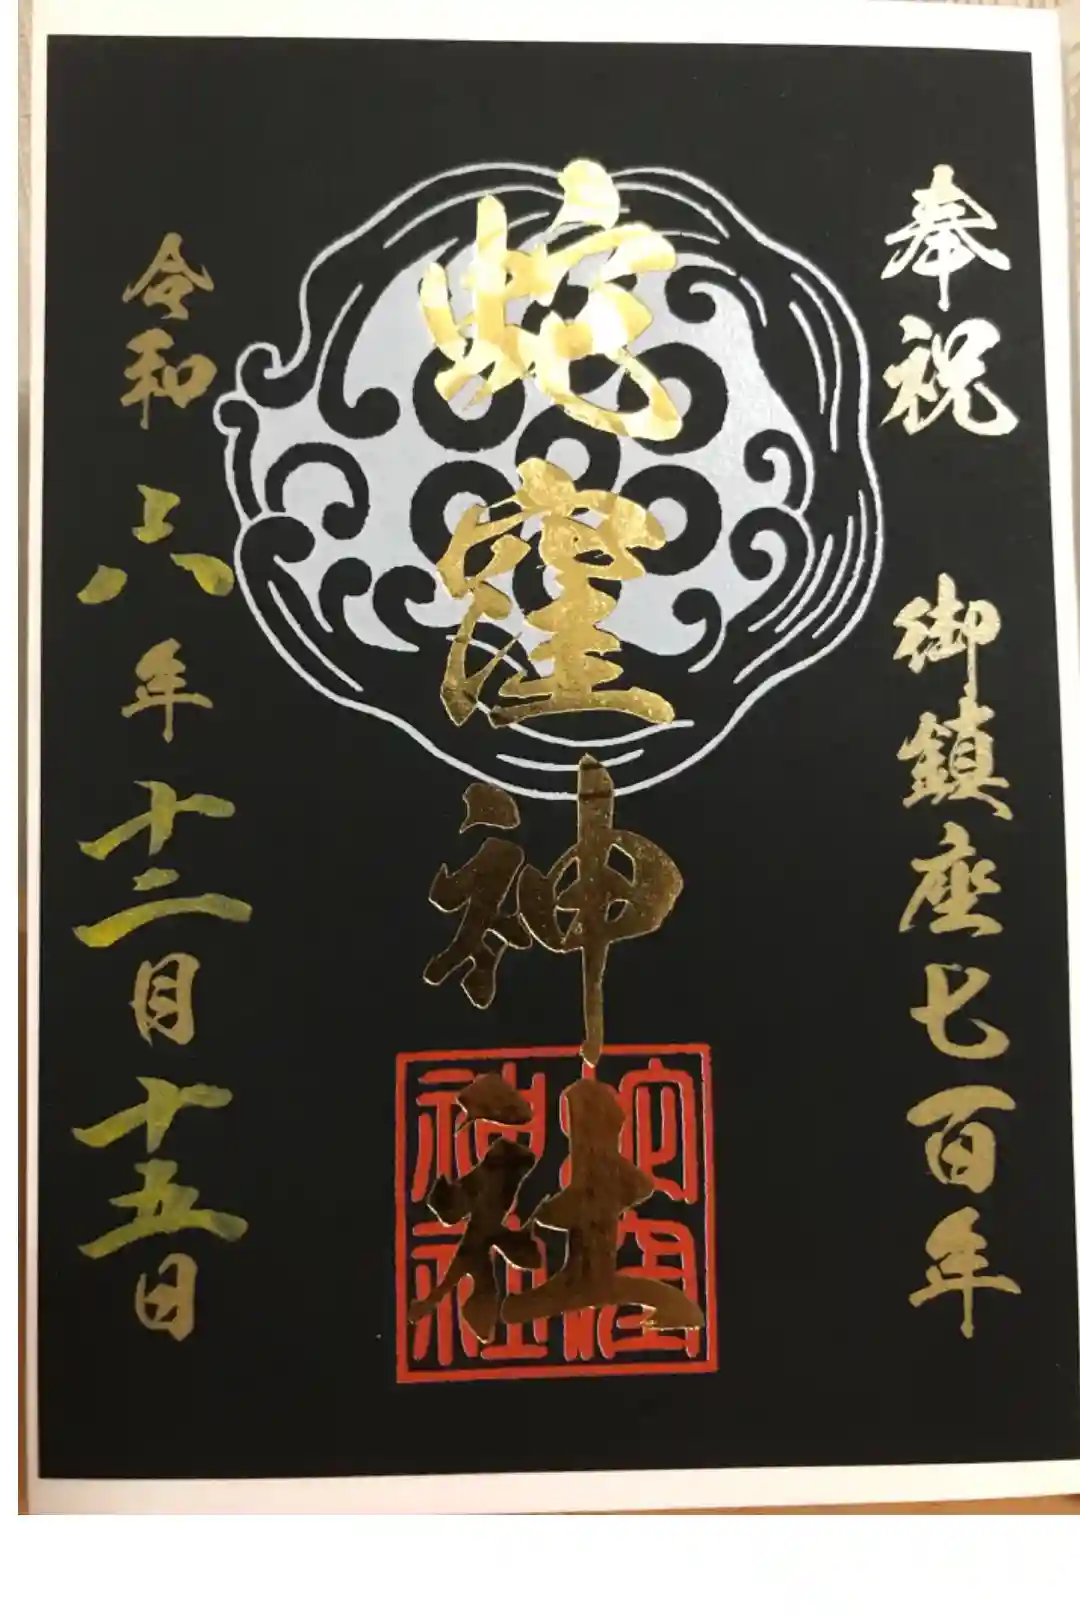 奉祝 御鎮座七百年
蛇窪神社
蛇窪
神社
令和六年十二月十五日